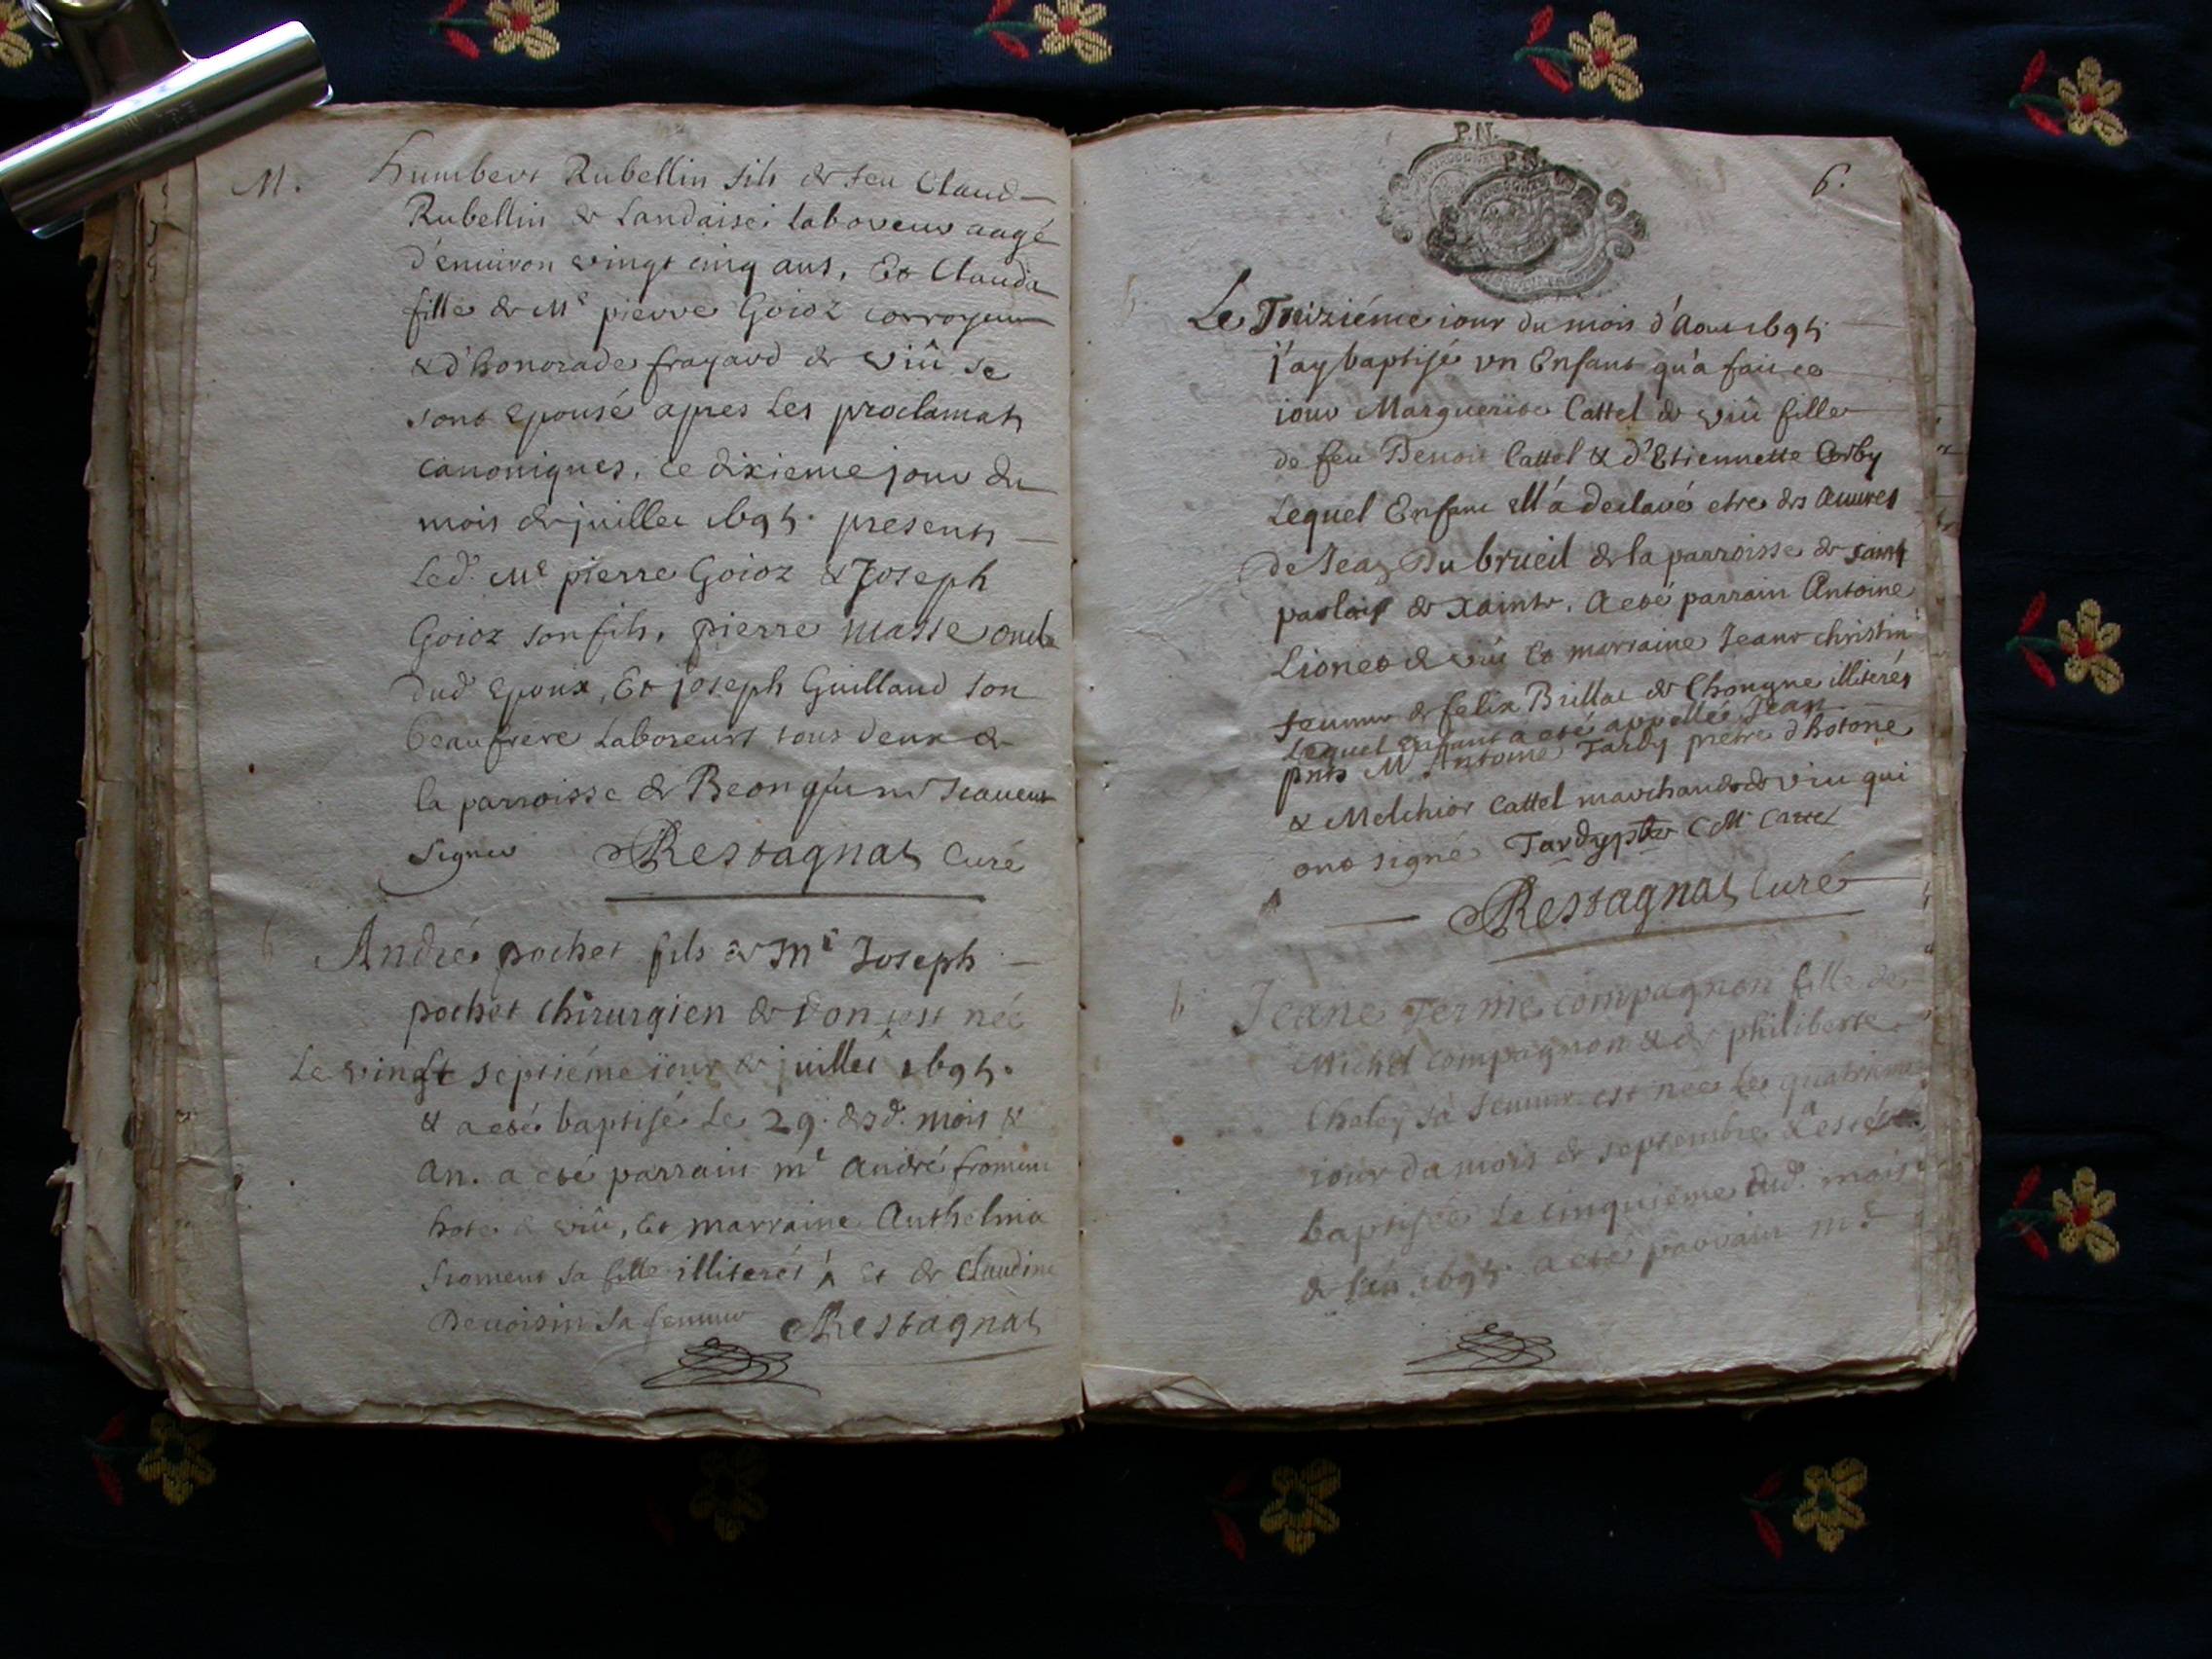 M.
humbert Rubellin fils de feu Claud
Rubellin de Landaise laboreur aagé
d'enuiron vingt cinq ans, Et Clauda
fille de Me pierre Goioz corroyeur
& d'honorade frayard de viû se
sont epousé apres les proclamats
canoniques, ce dixieme jour du
mois de juillet 1695. presents
Led. Me pierre Goioz & Joseph
Goioz son fils, pierre masse oncle
dud epoux, Et joseph Guilland son
beaufrere laboreurs tous deux de
la parroisse de Beon
signer Restagnat Curé
André pochet fils de Me Joseph
pochet chirurgien de est né
Le vingt septiéme iour de juillet 1695.
& a eté baptisé le 29. dud. mois &
an. a eté parrain me André froment
hote de viû, Et marraine Anthelma
froment sa fille illiterés Et de Claudine
Deuoisin sa femme Restagnat
P.N.
6.
Le Treiziéme iour du mois d'Aout 1695.
j'ay baptisé vn Enfant qu'a fait ce
iour Marguerite Cattel de viû fille
de feu Benoit Cattel & d'Etiennette
Lequel Enfant ell'a declaré etre des œuures
de Jean Du brueil de la parroisse de saint
de Xainte. A eté parrain Antoine
Lionet de viû Et marraine Jeane christin
femme de felix Brillat de Chongne illiterés
Lequel enfant a eté appellé Jean
pnts Mre Antoine Tardy pretre d'hotone
& Melchior Cattel marchand de viû qui
ont signé Tardy ptre C M Cattel
Restagnat Curé
b.
Jeane Termie compagnon fille de
Michel compagnon & de philiberte
Chaley sa femme est née le quatrieme
iour du mois de septembre & a esté
baptisée le cinquieme dud. mois
de l'an 1695. a eté parrain me